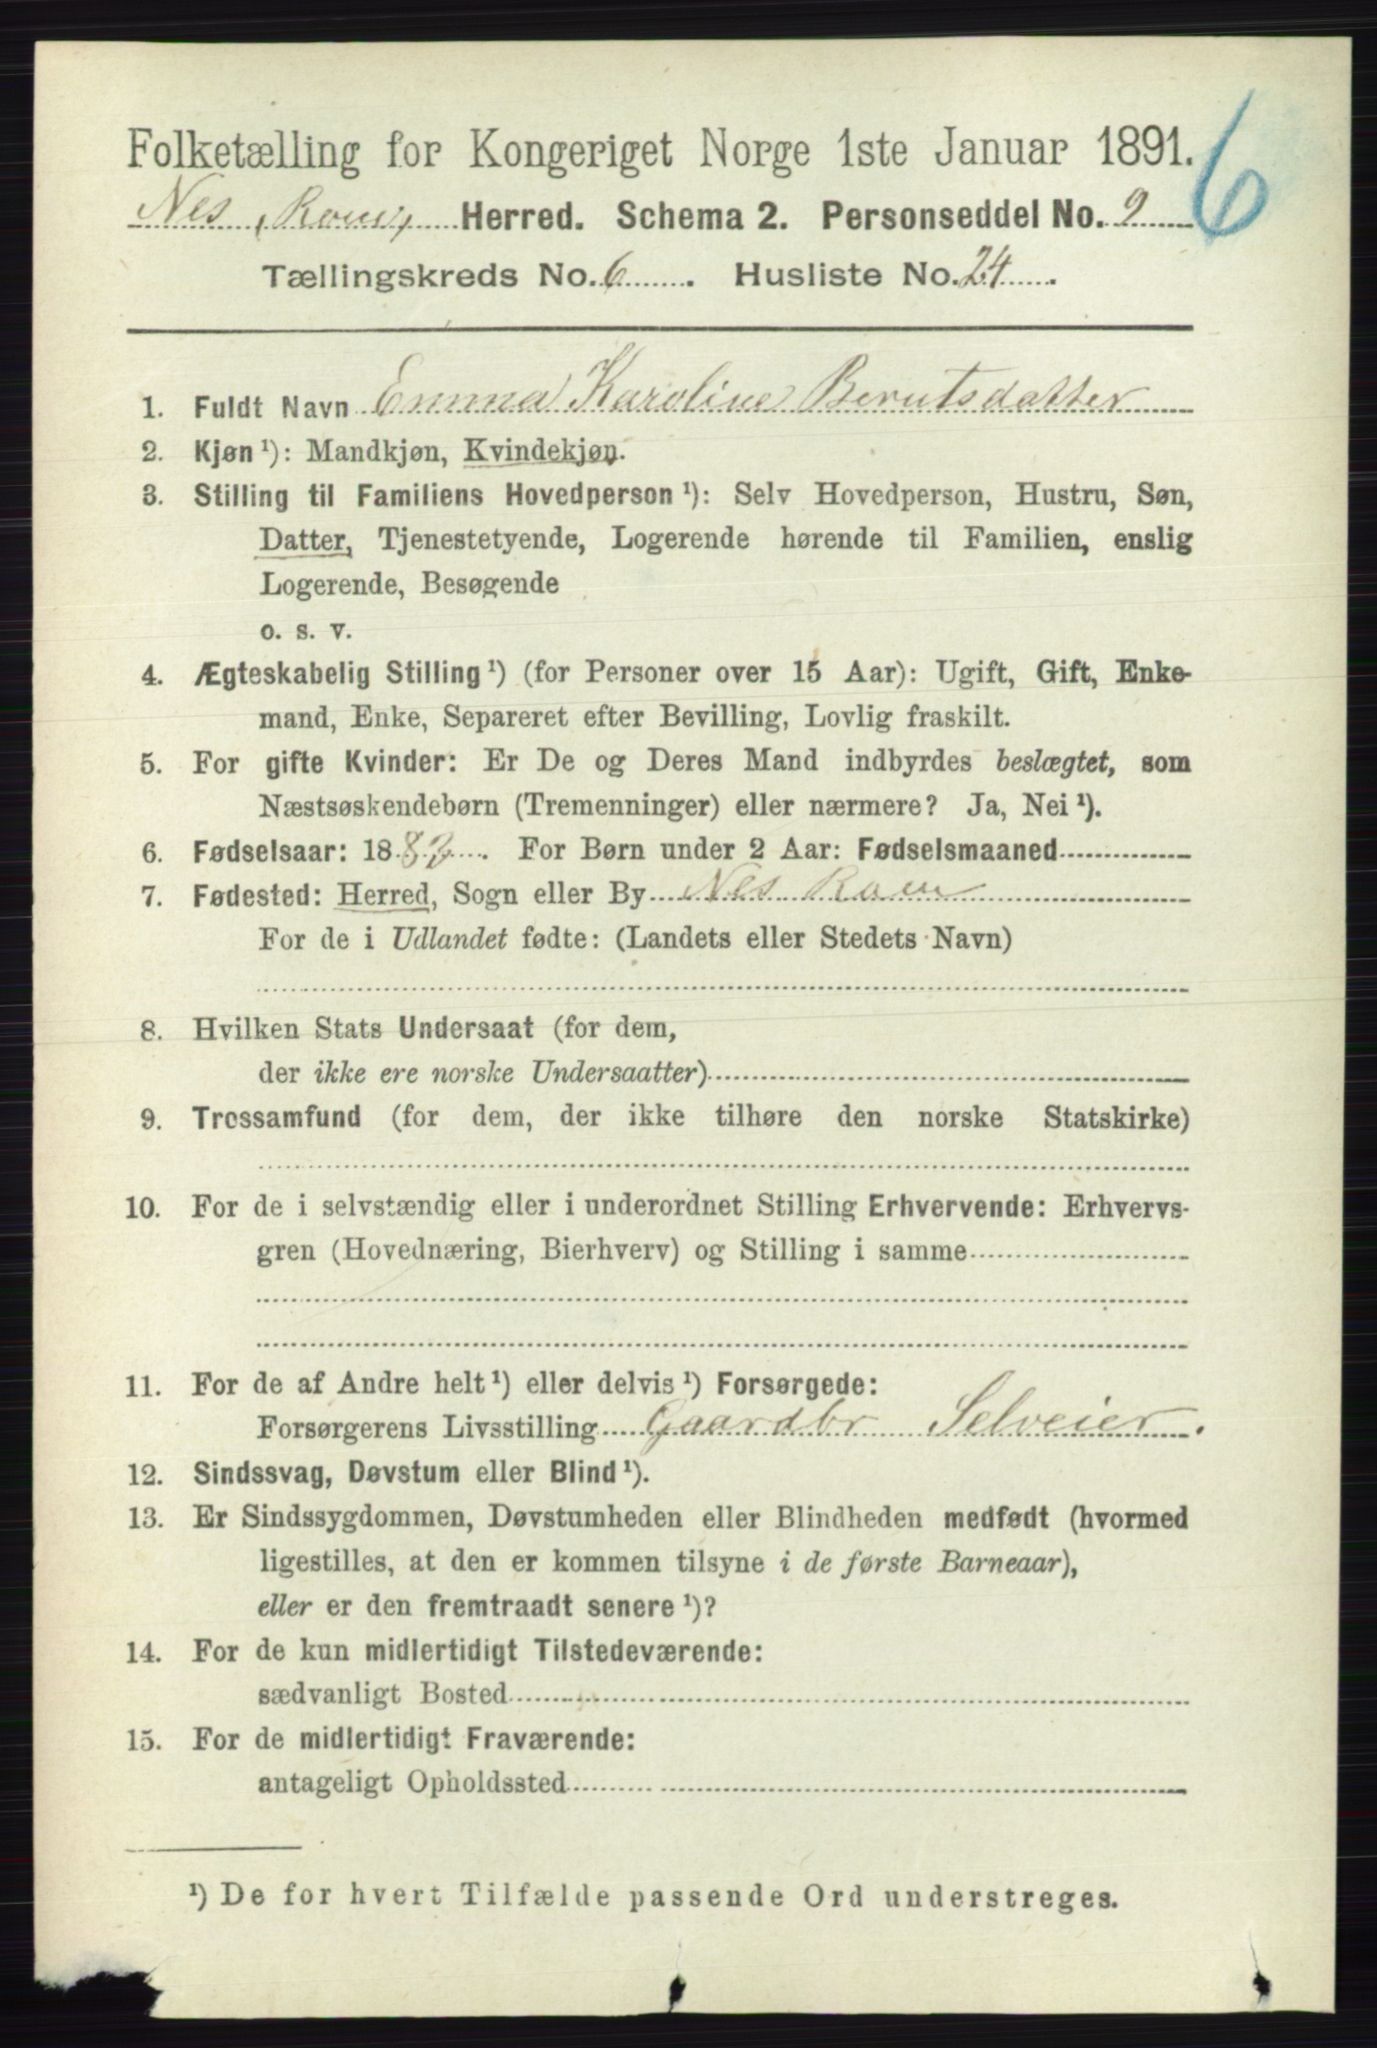 Folketælling for Kongeriget Norge 1ste Januar 1891.
6
Nes, Rom, Herred. Schema 2. Personseddel No. 9
Tællingskreds No. 6. Husliste No. 24.
1. Fuldt Navn Emma Karoline Berntsdatter
2. Kjøn ¹): Mandkjøn, Kvindekjøn.
3. Stilling til Familiens Hovedperson ¹): Selv Hovedperson, Hustru, Søn,
Datter, Tjenestetyende, Logerende hørende til Familien, enslig
Logerende, Besøgende
o. s. v.
4. Ægteskabelig Stilling ¹) (for Personer over 15 Aar): Ugift, Gift, Enke-
mand, Enke, Separeret efter Bevilling, Lovlig fraskilt.
5. For gifte Kvinder: Er De og Deres Mand indbyrdes beslægtet, som
Næstsøskendebørn (Tremenninger) eller nærmere? Ja, Nei ¹).
6. Fødselsaar: 18 . For Børn under 2 Aar: Fødselsmaaned
7. Fødested: Herred, Sogn eller By Nes Rom
For de i Udlandet fødte: (Landets eller Stedets Navn)
8. Hvilken Stats Undersaat (for dem,
der ikke ere norske Undersaatter)
9. Trossamfund (for dem, der ikke tilhøre den norske Statskirke)
10. For de i selvstændig eller i underordnet Stilling Erhvervende: Erhvervs-
gren (Hovednæring, Bierhverv) og Stilling i samme
11. For de af Andre helt ¹) eller delvis ¹) Forsørgede:
Forsørgerens Livsstilling Gaardbr Selveier.
12. Sindssvag, Døvstum eller Blind ¹).
13. Er Sindssygdommen, Døvstumheden eller Blindheden medfødt (hvormed
ligestilles, at den er kommen tilsyne i de første Barneaar),
eller er den fremtraadt senere ¹)?
14. For de kun midlertidigt Tilstedeværende:
sædvanligt Bosted
15. For de midlertidigt Fraværende:
antageligt Opholdssted
¹) De for hvert Tilfælde passende Ord understreges.